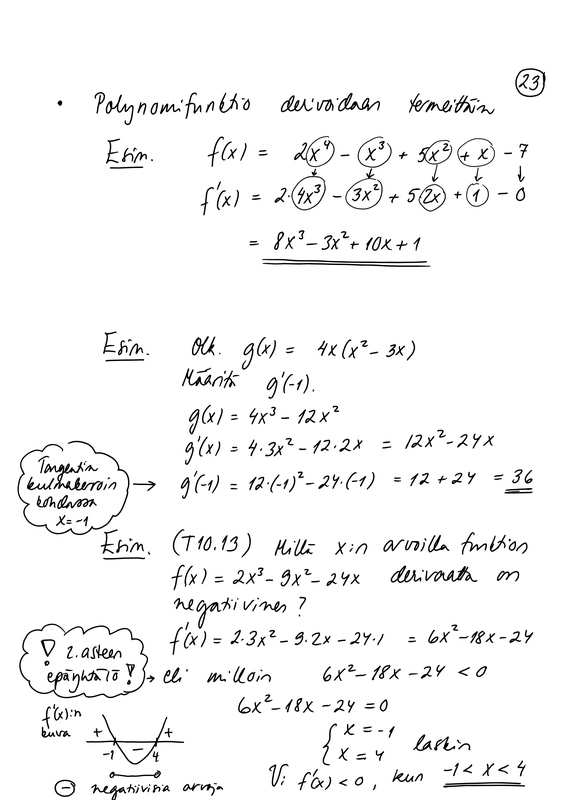 23
• Polynomifunktio derivoidaan termeittäin
Esim. f(x) = 2x⁴ - x³ + 5x² + x - 7
f'(x) = 2·4x³ - 3x² + 5·2x + 1 - 0
= 8x³ - 3x² + 10x + 1
Esim. Olk. g(x) = 4x(x² - 3x)
Määritä g'(-1).
g(x) = 4x³ - 12x²
g'(x) = 4·3x² - 12·2x = 12x² - 24x
Tangentin
kulmakerroin
kohdassa
x = -1
→ g'(-1) = 12·(-1)² - 24·(-1) = 12 + 24 = 36
Esim. (T10.13) Millä x:n arvoilla funktion
f(x) = 2x³ - 9x² - 24x derivaatta on
negatiivinen?
f'(x) = 2·3x² - 9·2x - 24·1 = 6x² - 18x - 24
! 2. asteen
epäyhtälö !
→ eli milloin 6x² - 18x - 24 < 0
6x² - 18x - 24 = 0
{ x = -1
x = 4 laskin
f'(x):n
kuva
+ - +
-1 4
⊖ negatiivisia arvoja
V: f'(x) < 0, kun -1 < x < 4